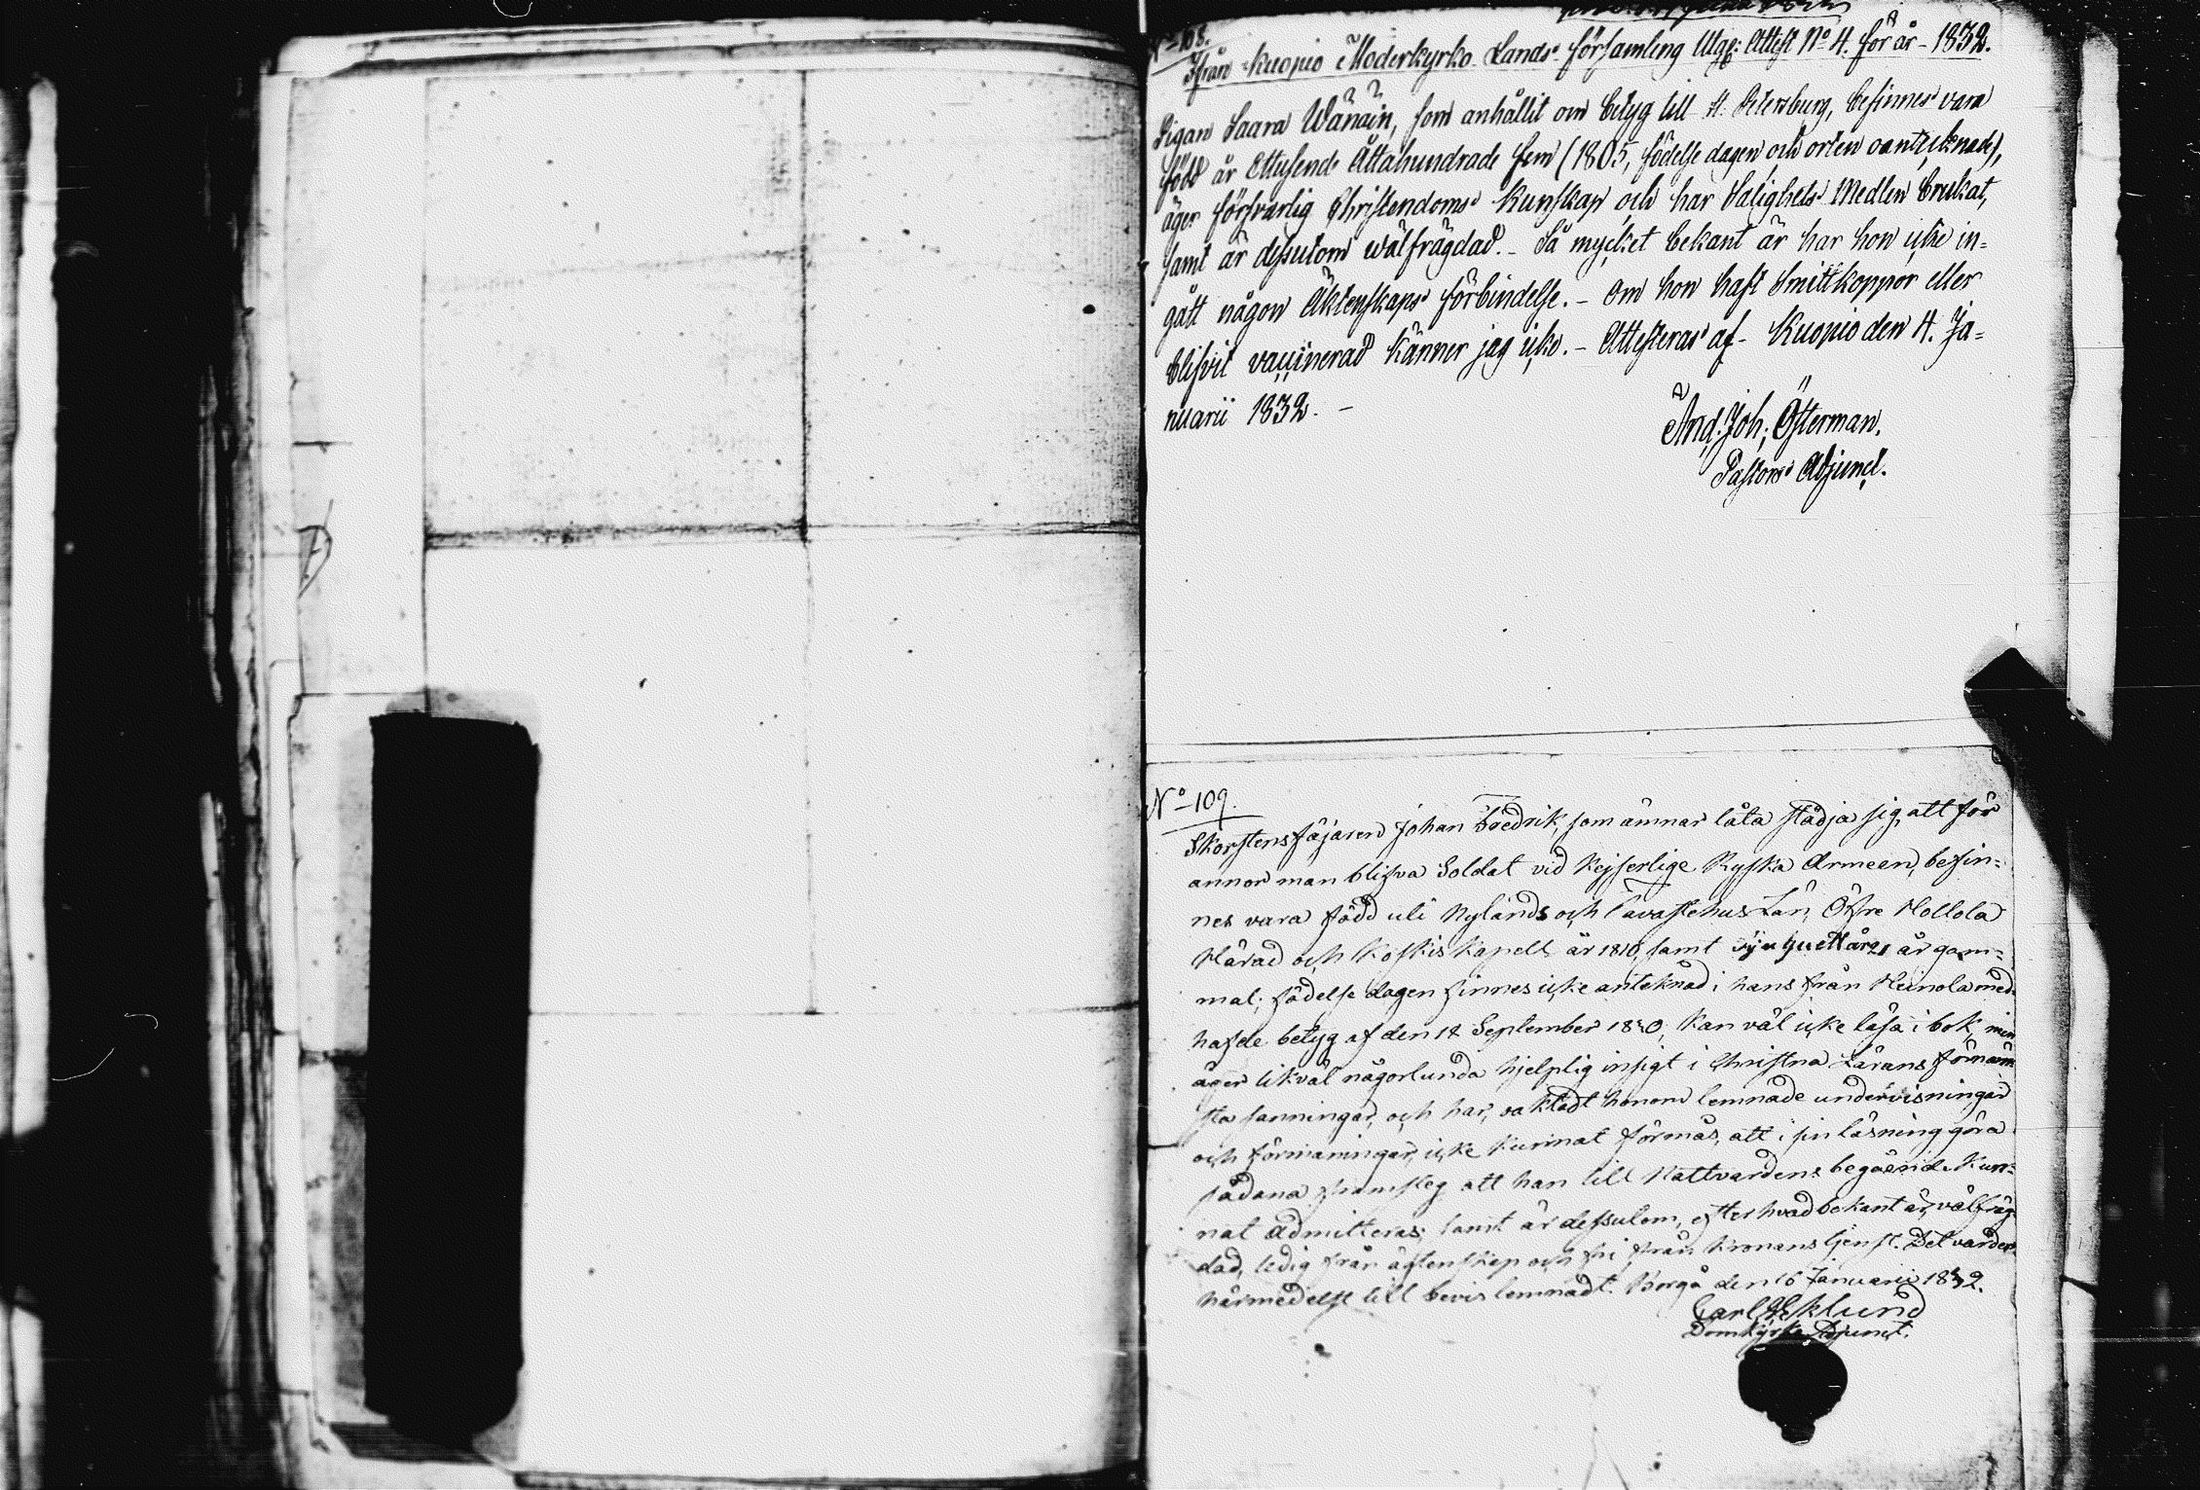 N° 108.
Ifrån Kuopio Moderkyrko Lands församling Utg: Attest N° 4. för år 1832.
Pigan Saara Wänäin, som anhållit om betyg till St. Petersburg, befinnes vara
född år Ettusende Åttahundrade fem (1805, födelse dagen och orten oantecknad),
äger försvarlig Christendoms Kunskap och har Salighets Medlen brukat,
samt är dessutom wälfrägdad. – Så mycket bekant är har hon icke in=
gått någon Äktenskaps förbindelse. – Om hon haft Smittkoppor eller
blifvit vaccinerad känner jag icke. – Attesteras af – Kuopio den 4. Ja=
nuarii 1832. –
And: Joh: Österman.
Pastors Adjunct.
N° 109.
Skorstensfäjaren Johan Fredrik, som ämnar låta städja sig, att för
annor man blifva Soldat vid Kejserlige Ryska Armeen, befin=
nes vara född uti Nylands och Tavastehus Län, Öfre Hollola
Härad och Koskis Kapell år 1810, samt år gam=
mal; födelse dagen finnes icke anteknad i hans från Heinola med
hafde betyg af den 14 September 1830; kan väl icke läsa i bok, men
äger likväl någorlunda hjelplig insigt i Christna Lärans förnäm
sta sanningar, och har, oaktadt honom lemnade undervisningar
och förmaningar, icke kunnat förmås, att i sin läsning göra
sådana framsteg att han till Nattvardens begående kun=
nat admitteras; samt är dessutom, efter hvad bekant är, välfräg
dad, ledig från ägtenskap och fri från Kronans tjenst. Det varder
härmedelst till bevis lemnadt. Borgå den 16 Januarii 1832.
Carl Eklund
Domkyrko Adjunct.